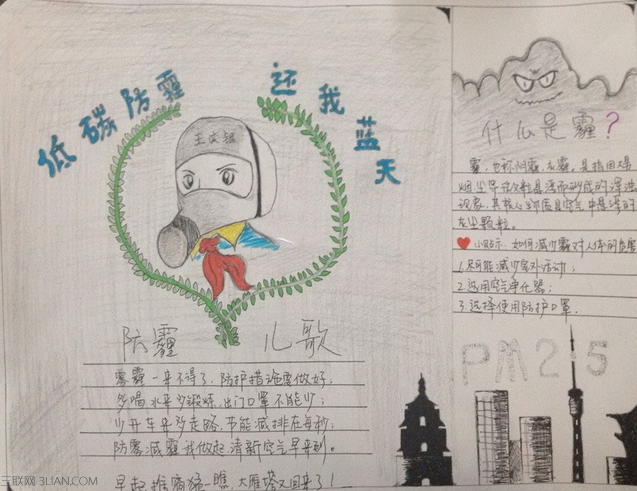 低碳防霾
还我蓝天
什么是霾?
雾霾,也称阴霾、灰霾,是指由大量
烟、尘等微粒悬浮而形成的浑浊
现象,其核心物质是空气中悬浮的
灰尘颗粒。
小贴示:如何减少霾对人体的危害
1.尽可能减少室外活动;
2.选用空气净化器;
3.选择使用防护口罩。
PM2.5
防霾 儿歌
雾霾一来不得了,防护措施要做好;
多喝水来多锻炼,出门口罩不能少;
少开车来多走路,节能减排在每秒;
防雾减霾我做起,清新空气早来到。
早起推窗猛一瞧,大雁塔又回来了!
三联网 3LIAN.COM